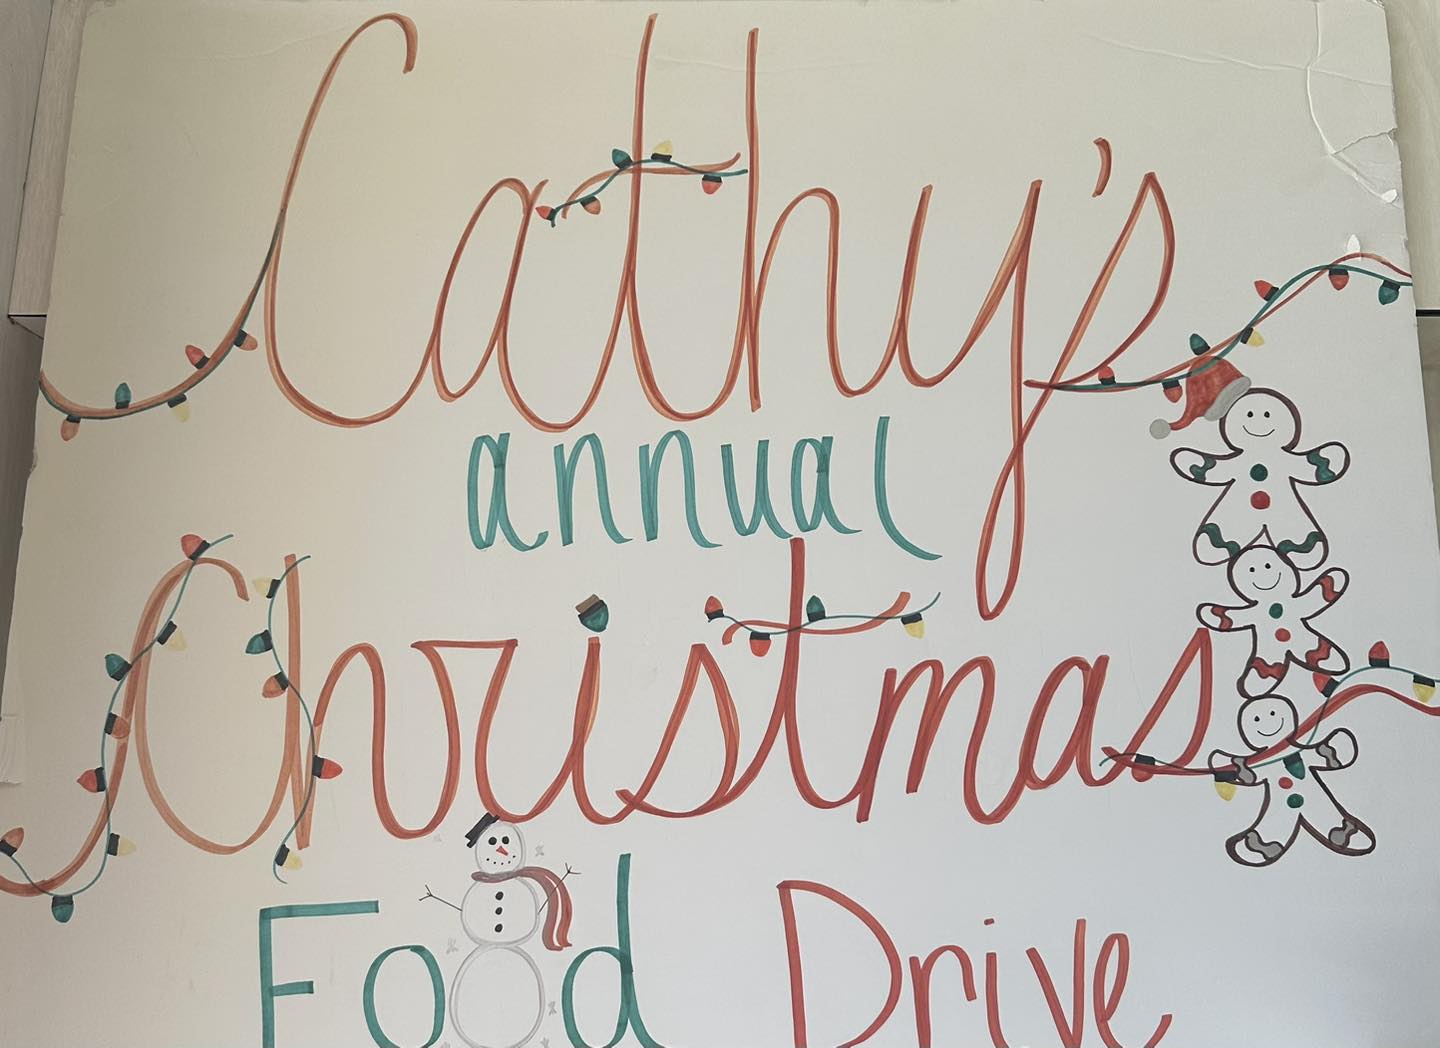 Cathy's
annual
Christmas
Food Drive